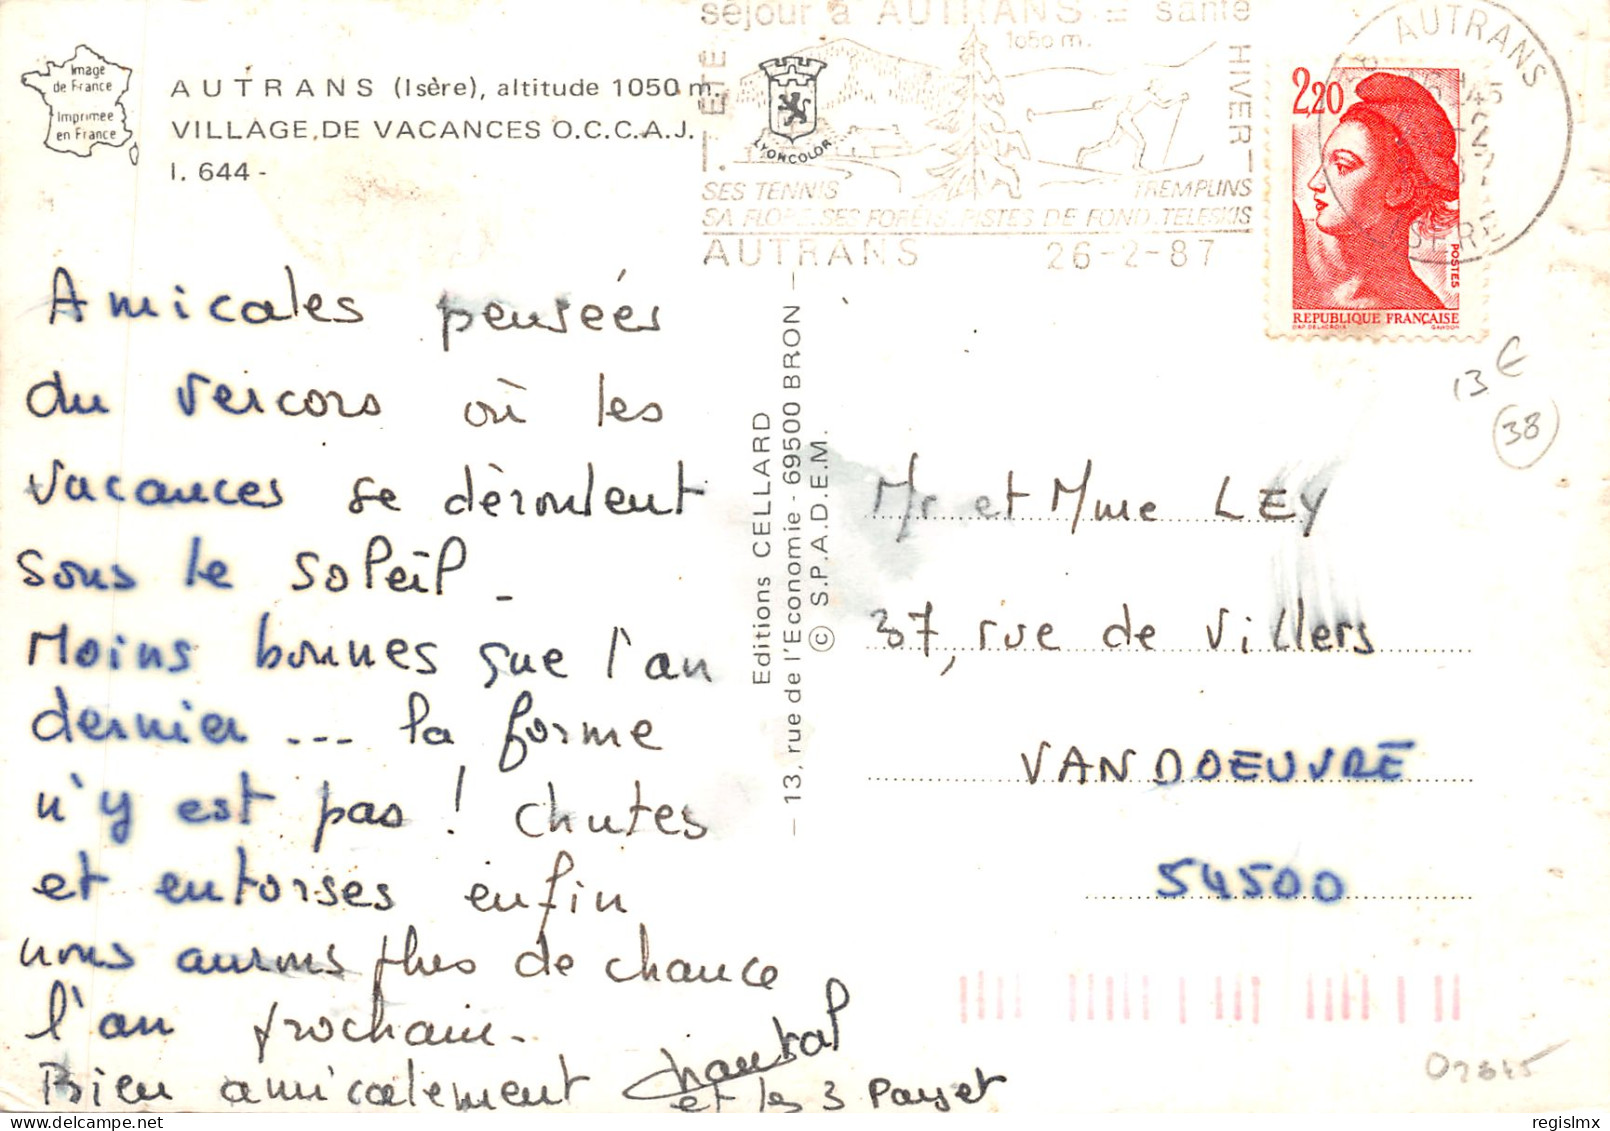 Image
de France
Imprimée
en France
AUTRANS (Isère), altitude 1050 m.
VILLAGE DE VACANCES O.C.C.A.J.
I. 644 -
séjour à AUTRANS = santé
1050 m.
ÉTÉ
HIVER
LYONCOLOR
SES TENNIS
TREMPLINS
SA FLORE.SES FORÊTS.PISTES DE FOND.TELESKIS
AUTRANS 26-2-87
AUTRANS
ISERE
2,20
POSTES
REPUBLIQUE FRANÇAISE
DAP. DELACROIX GANDON
13 €
38
Amicales pensées
du Vercors où les
vacances se déroulent
sous le soleil _
Moins bonnes que l'an
dernier ... la forme
n'y est pas ! Chutes
et entorses enfin
nous aurons plus de chance
l'an prochain.
Bien amicalement Chantal
et les 3 Payet
Editions CELLARD
13, rue de l'Economie - 69500 BRON
© S.P.A.D.E.M.
Mr et Mme LEY
37, rue de Villers
VANDOEUVRE
54500
regislmx